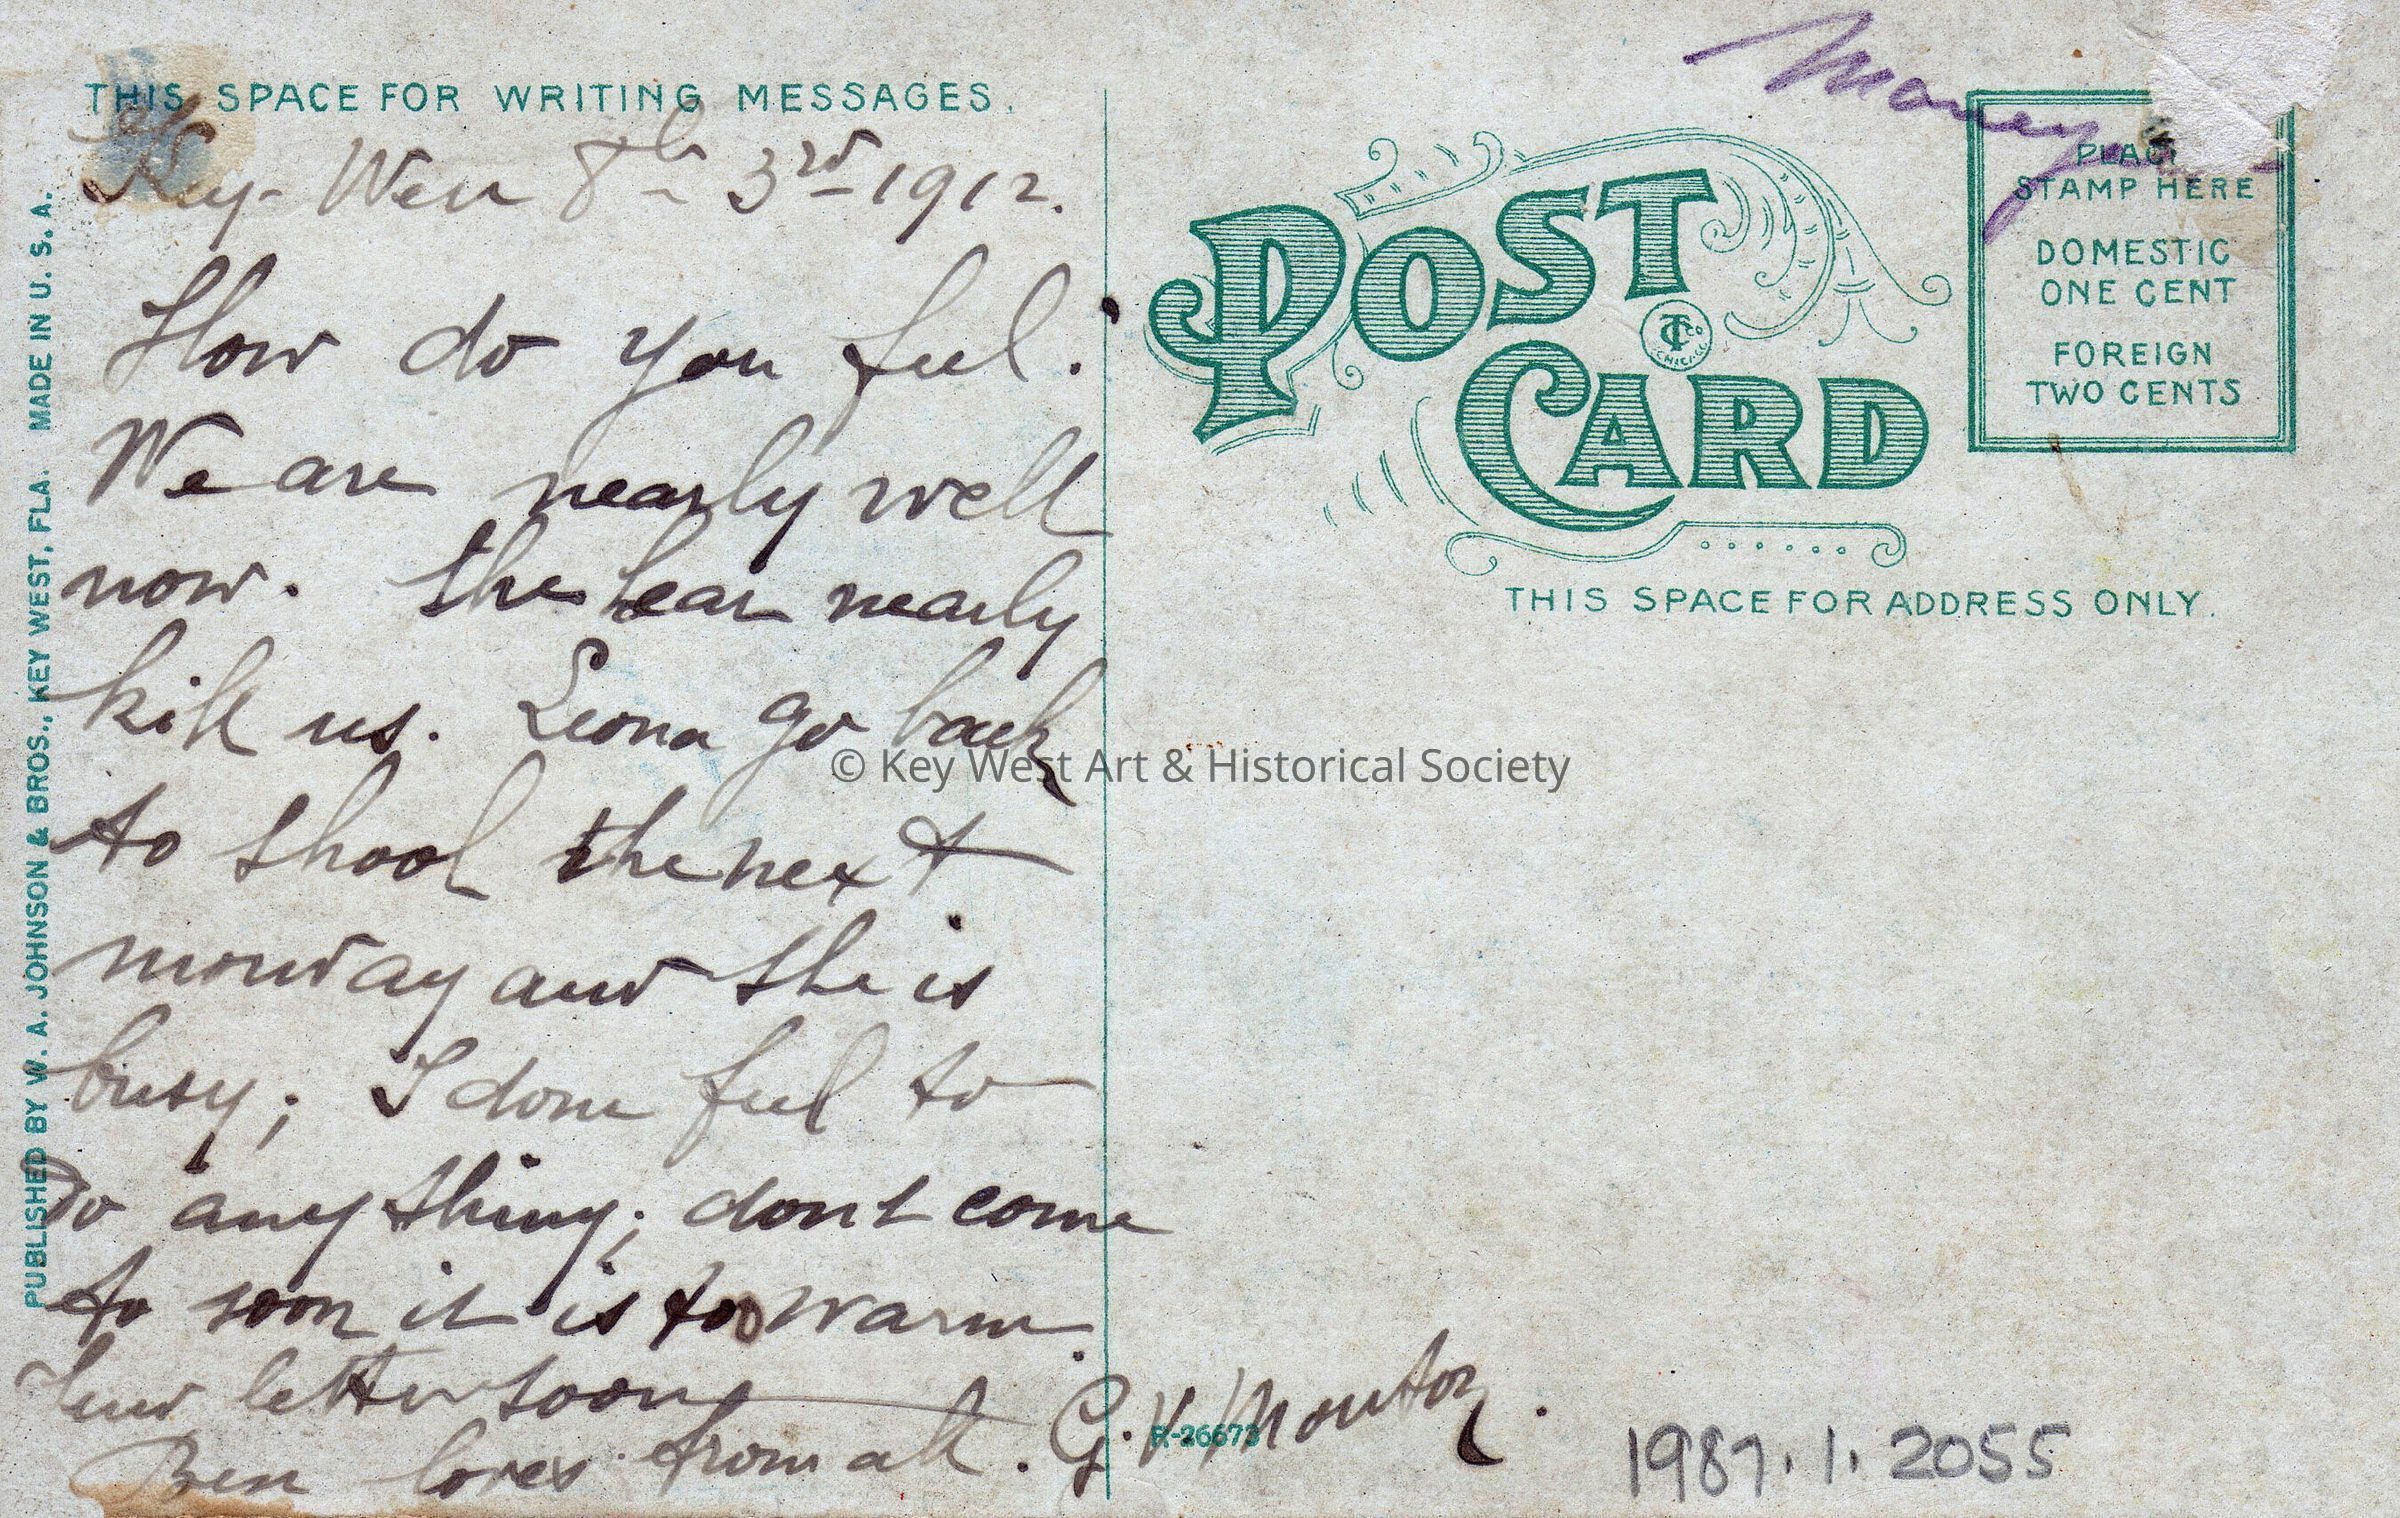 THIS SPACE FOR WRITING MESSAGES.
Key-West 8th 3rd 1912.
How do you feel.
We are nearly well
now. the hear nearly
kill us. Leona go back
to shool the next
monday and she is
busy; I dont feel to
do any thing; dont come
to soon it is too warm.
letter soon
Best loves from all. G. V.
PUBLISHED BY W. A. JOHNSON & BROS., KEY WEST, FLA. MADE IN U. S. A.
POST CARD
TC Co
CHICAGO
THIS SPACE FOR ADDRESS ONLY.
PLACE
STAMP HERE
DOMESTIC
ONE CENT
FOREIGN
TWO CENTS
© Key West Art & Historical Society
R-26673
1987.1.2055